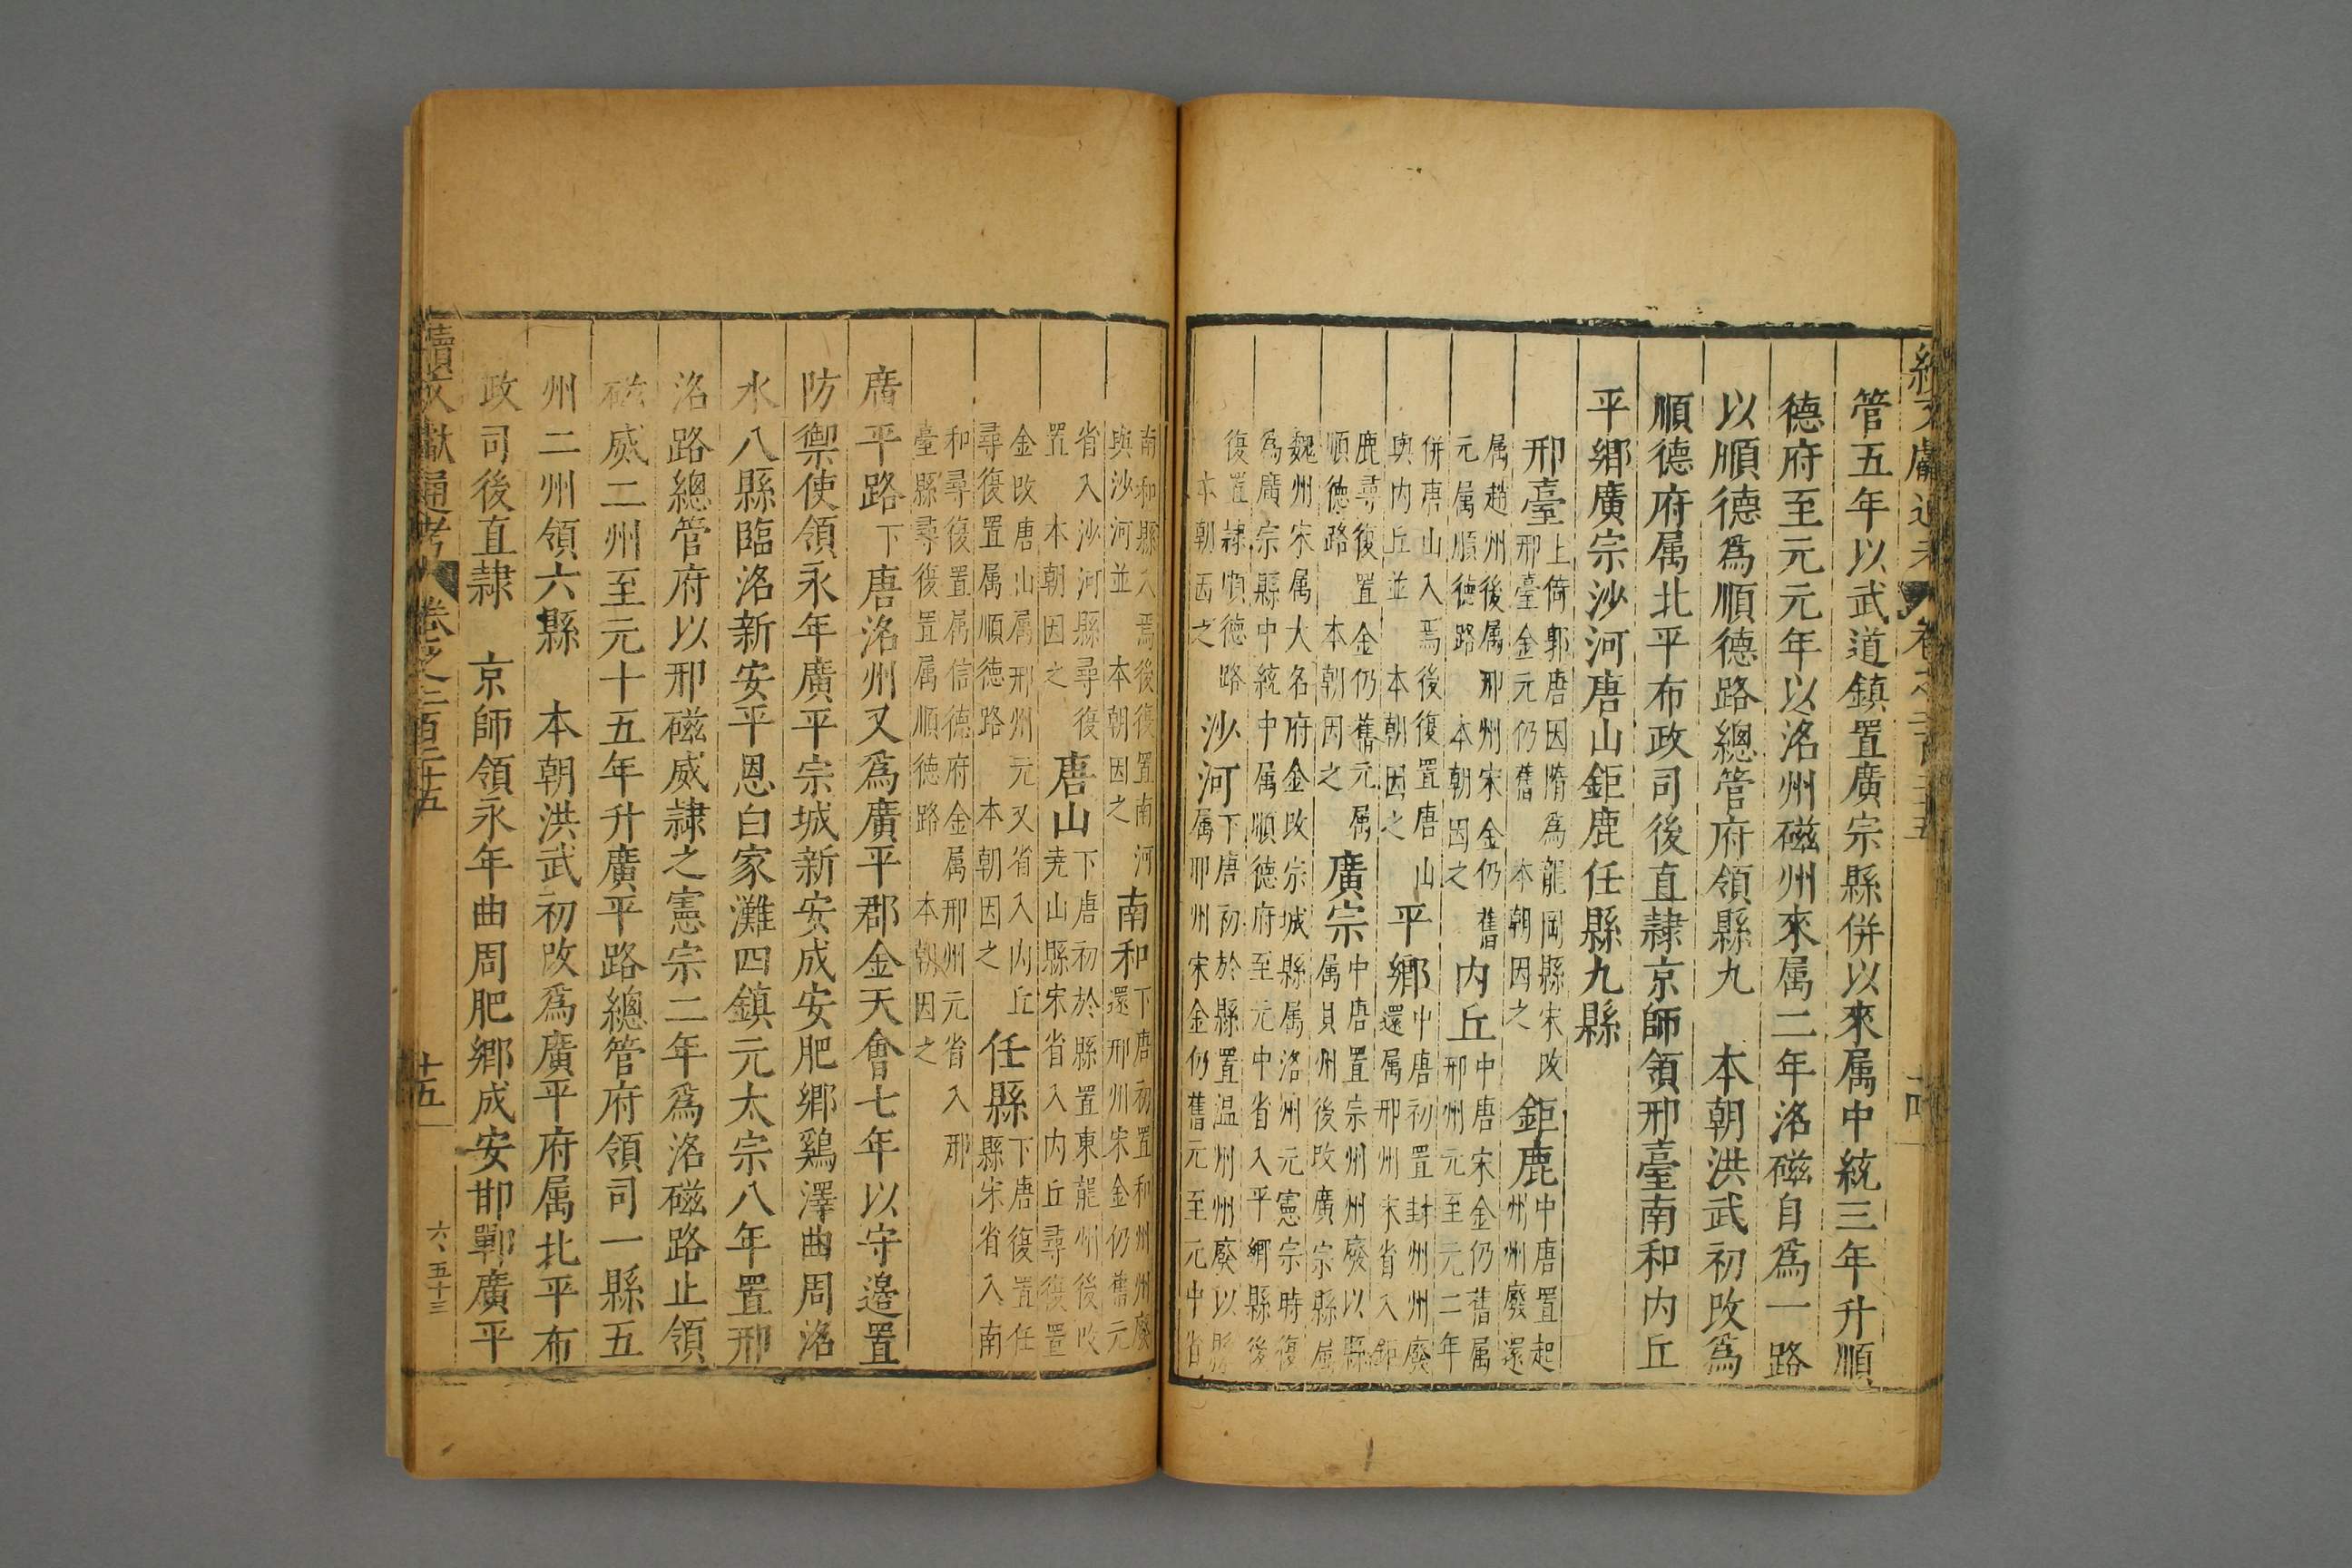 管五年以武道鎮置廣宗縣併以來属中統三年升順
德府至元元年以洺州磁州來属二年洺磁自爲一路
以順德爲順德路總管府領縣九　本朝洪武初改爲
順德府属北平布政司後直隷京師領邢臺南和内丘
平鄉廣宗沙河唐山鉅鹿任縣九縣
邢臺上倚郭唐因隋爲龍岡縣宋改
邢臺金元仍舊　本朝因之
鉅鹿中唐置起
州州廢還
属趙州後属邢州宋金仍舊
元属順德路　本朝因之
内丘中唐宋金仍舊属
邢州元至元二年
併唐山入焉後復置唐山
與内丘並　本朝因之
平鄉中唐初置封州州廢
還属邢州宋省入鉅
鹿尋復置金仍舊元属
順德路　本朝因之
廣宗中唐置宗州州廢以縣
属貝州後改廣宗縣屬
魏州宋属大名府金改宗城縣属洛州元憲宗時復
爲廣宗縣中統中属順德府至元中省入平鄉縣後
復置隷順德路
本朝因之
沙河下唐初於縣置温州州廢以縣
属邢州宋金仍舊元至元中省
南和縣入焉後復置南河
與沙河並　本朝因之
南和下唐初置和州州廢
還邢州宋金仍舊元
省入沙河縣尋復
置　本朝因之
唐山下唐初於縣置東龍州後改
尭山縣宋省入内丘尋復置
金改唐山属邢州元又省入内丘
尋復置属順德路　本朝因之
任縣下唐復置任
縣宋省入南
和尋復置属信德府金属邢州元省入邢
臺縣尋復置属順德路　本朝因之
廣平路下唐洺州又爲廣平郡金天會七年以守邊置
防禦使領永年廣平宗城新安成安肥鄉鷄澤曲周洺
水八縣臨洺新安平恩白家灘四鎮元太宗八年置邢
洺路總管府以邢磁威隷之憲宗二年爲洺磁路止領
磁威二州至元十五年升廣平路總管府領司一縣五
州二州領六縣　本朝洪武初改爲廣平府属北平布
政司後直隷　京師領永年曲周肥鄉成安邯鄲廣平
續文獻通考　卷之二百二十五
十五
六、五十三